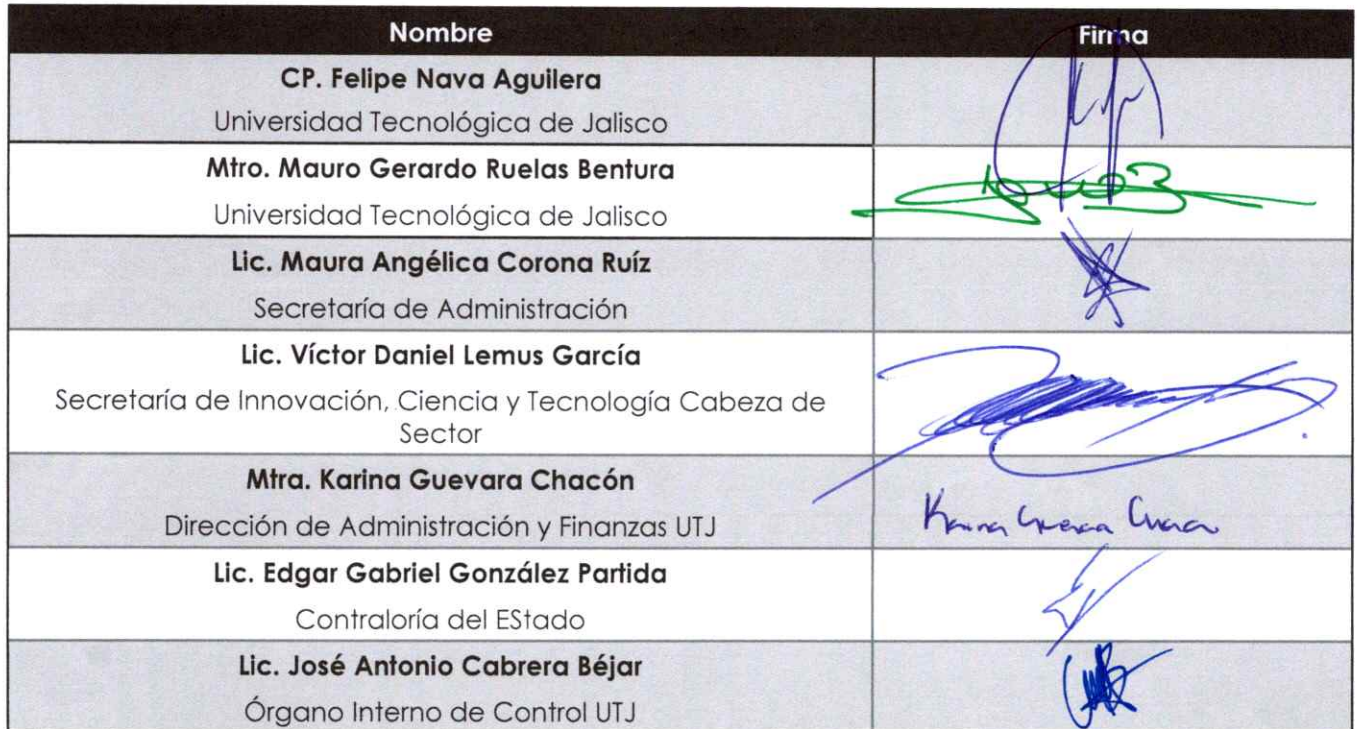 Nombre Firma
CP. Felipe Nava Aguilera
Universidad Tecnológica de Jalisco
Mtro. Mauro Gerardo Ruelas Bentura
Universidad Tecnológica de Jalisco
Lic. Maura Angélica Corona Ruíz
Secretaría de Administración
Lic. Víctor Daniel Lemus García
Secretaría de Innovación, Ciencia y Tecnología Cabeza de
Sector
Mtra. Karina Guevara Chacón
Dirección de Administración y Finanzas UTJ
Karina
Lic. Edgar Gabriel González Partida
Contraloría del EStado
Lic. José Antonio Cabrera Béjar
Órgano Interno de Control UTJ